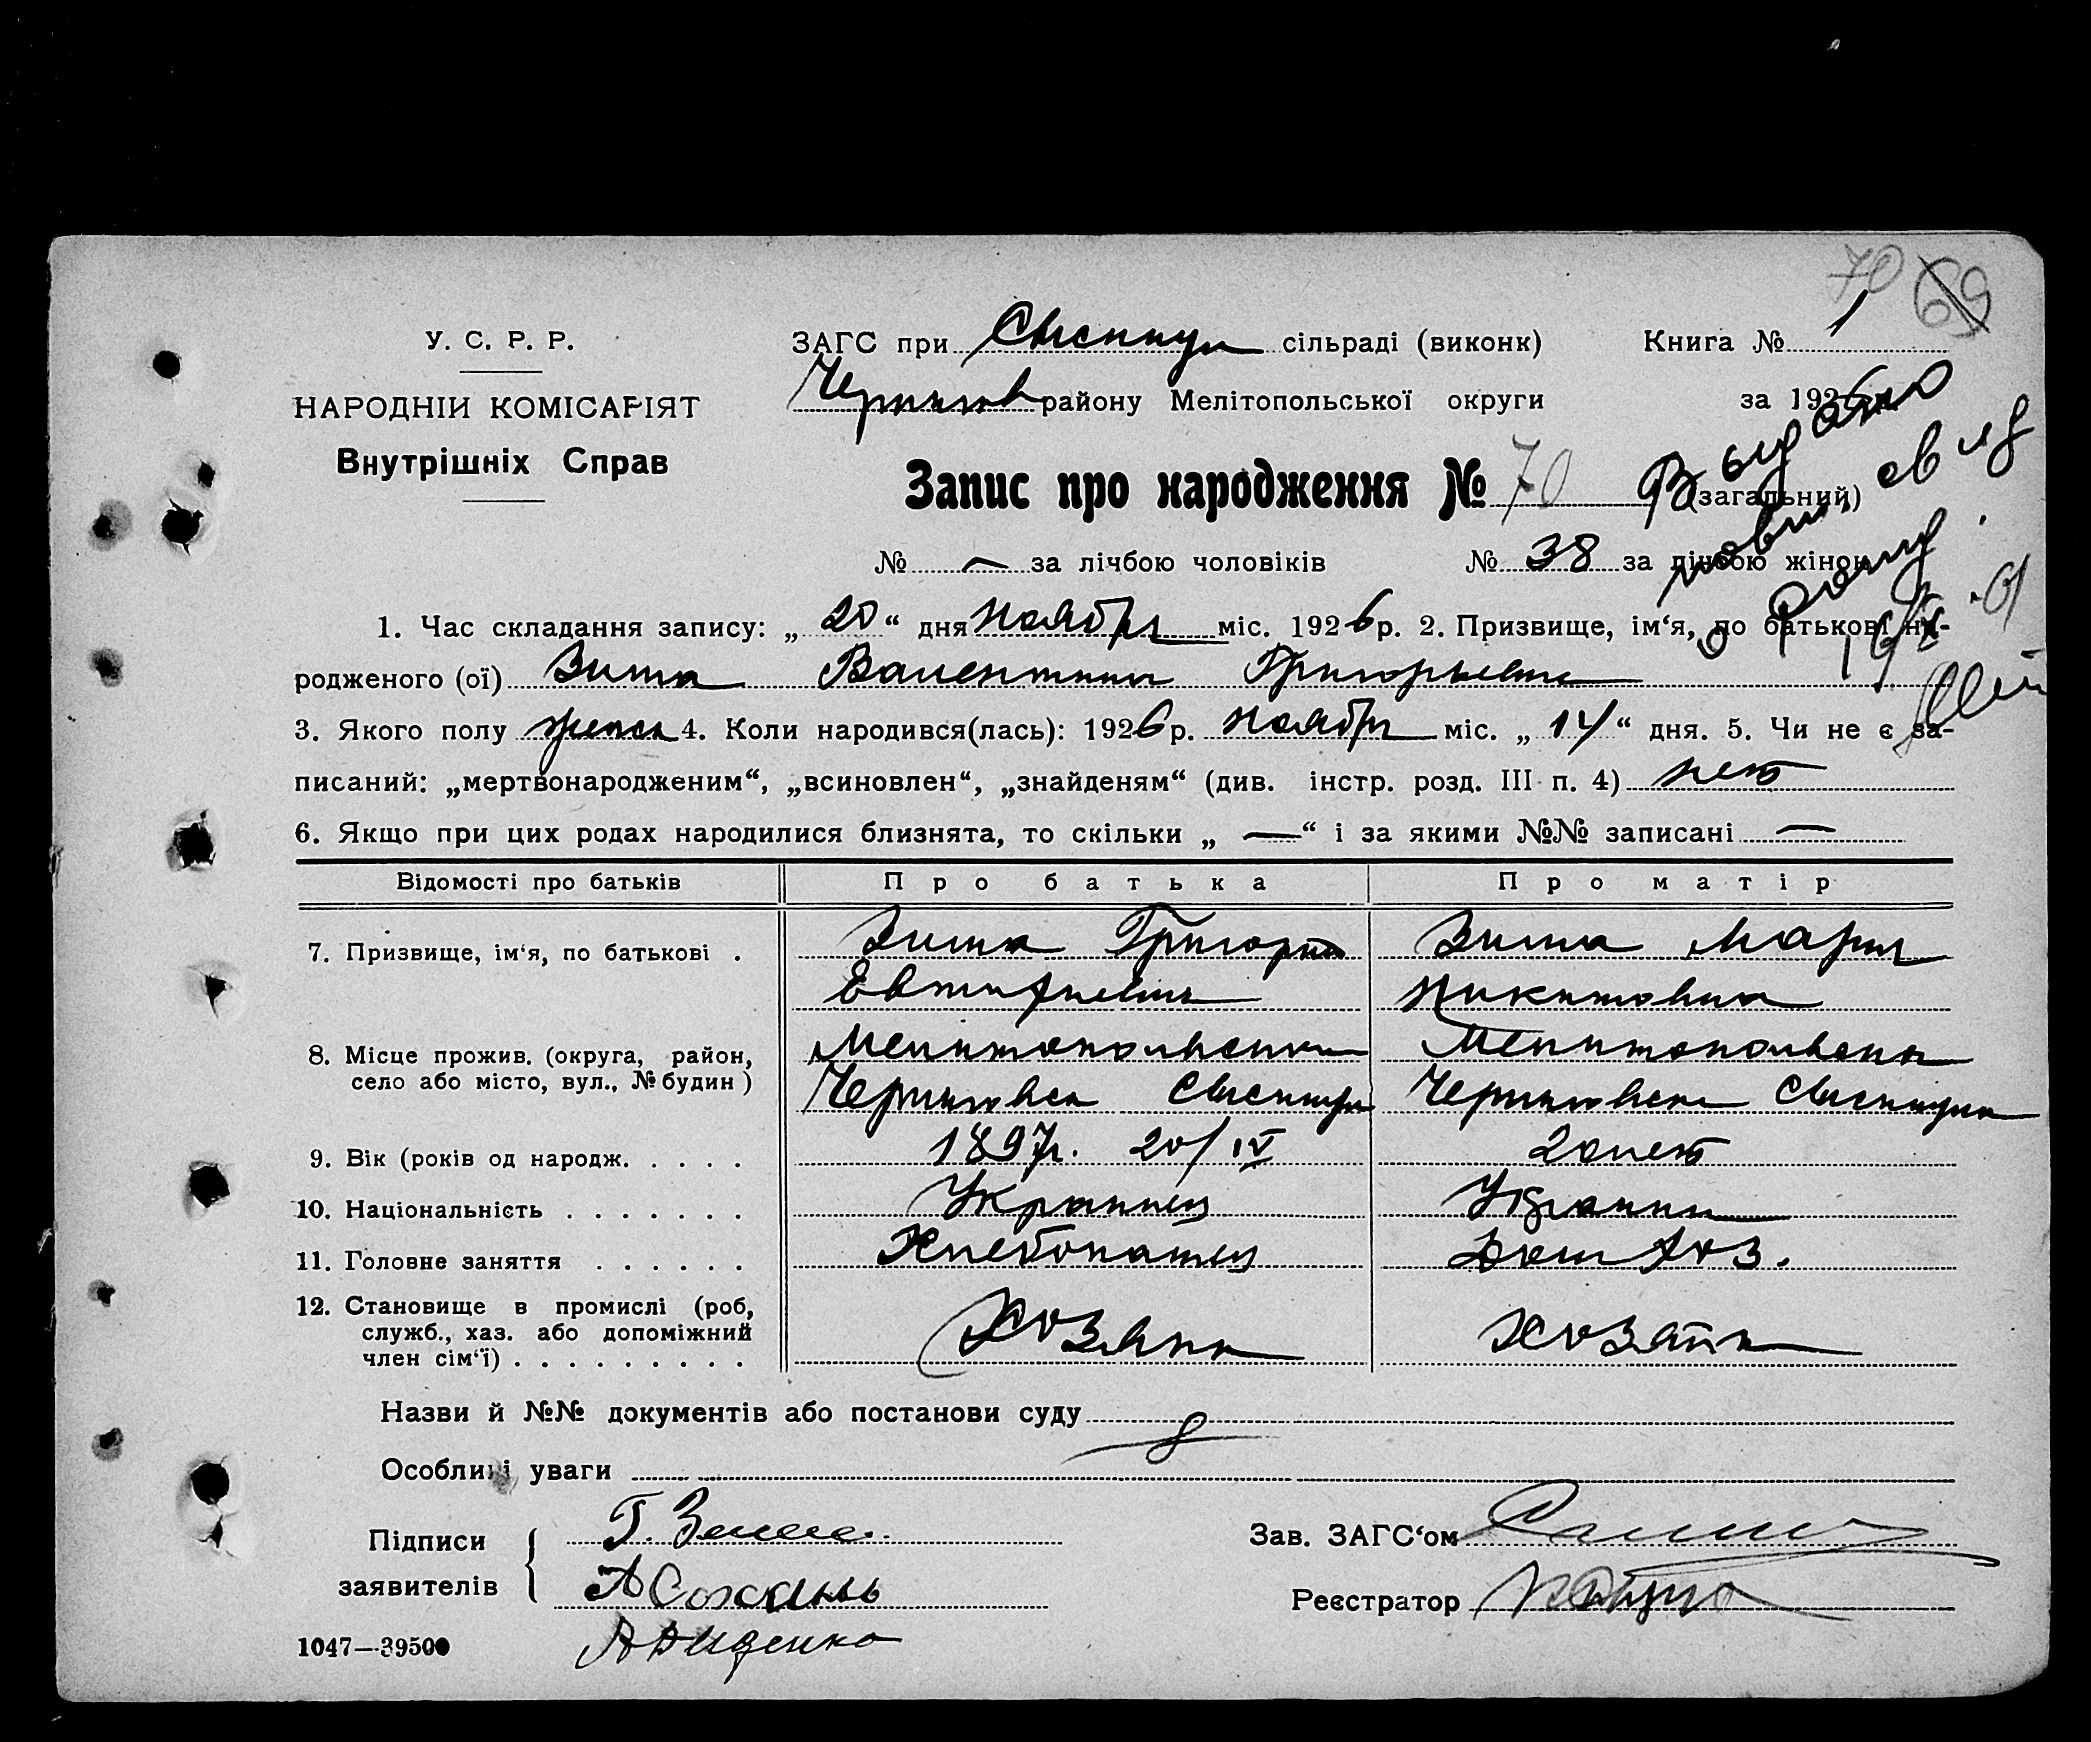 70 69
У. С. Р. Р.
ЗАГС при сільраді (виконк) Книга № 1
НАРОДНІЙ КОМІСАРІЯТ
Чернигов району Мелітопольської округи за 1926
Внутрішніх Справ
Запис про народження № 70 (загальний)
Выдано
новое свид
о рожд.
№ — за лічбою чоловіків № 38 за лічбою жінок
1. Час складання запису: „ 20 “ дня Ноября міс. 1926 р. 2. Призвище, ім‘я, по батькові на-
родженого (ої) Зима Валентина Григорьевна
3. Якого полу женск 4. Коли народився(лась): 1926 р. Ноября міс. „ 14 “ дня. 5. Чи не є за-
писаний: „мертвонародженим“, „всиновлен“, „знайденям“ (див. інстр. розд. III п. 4) нет
6. Якщо при цих родах народилися близнята, то скільки „ — “ і за якими №№ записані —
Відомості про батьків Про батька Про матір
7. Призвище, ім‘я, по батькові . Зима Григорий Зима Мария
Евтифиевич Никитовна
8. Місце прожив. (округа, район, Мелитопольская Мелитопольская
село або місто, вул., № будин) Черниговск Черниговск
9. Вік (років од народж. . . . . 1897г. 20/IV 20 лет
10. Національність . . . . . . . Украинец Украинка
11. Головне заняття . . . . . . Хлебопашец Дом хоз.
12. Становище в промислі (роб,
служб., хаз. або допоміжний Хозяин Хозяйка
член сім‘ї) . . . . . . . . .
Назви й №№ документів або постанови суду
Особливі уваги
Підписи Г. Зима Зав. ЗАГС‘ом
заявителів Реєстратор
1047—39500 Диденко